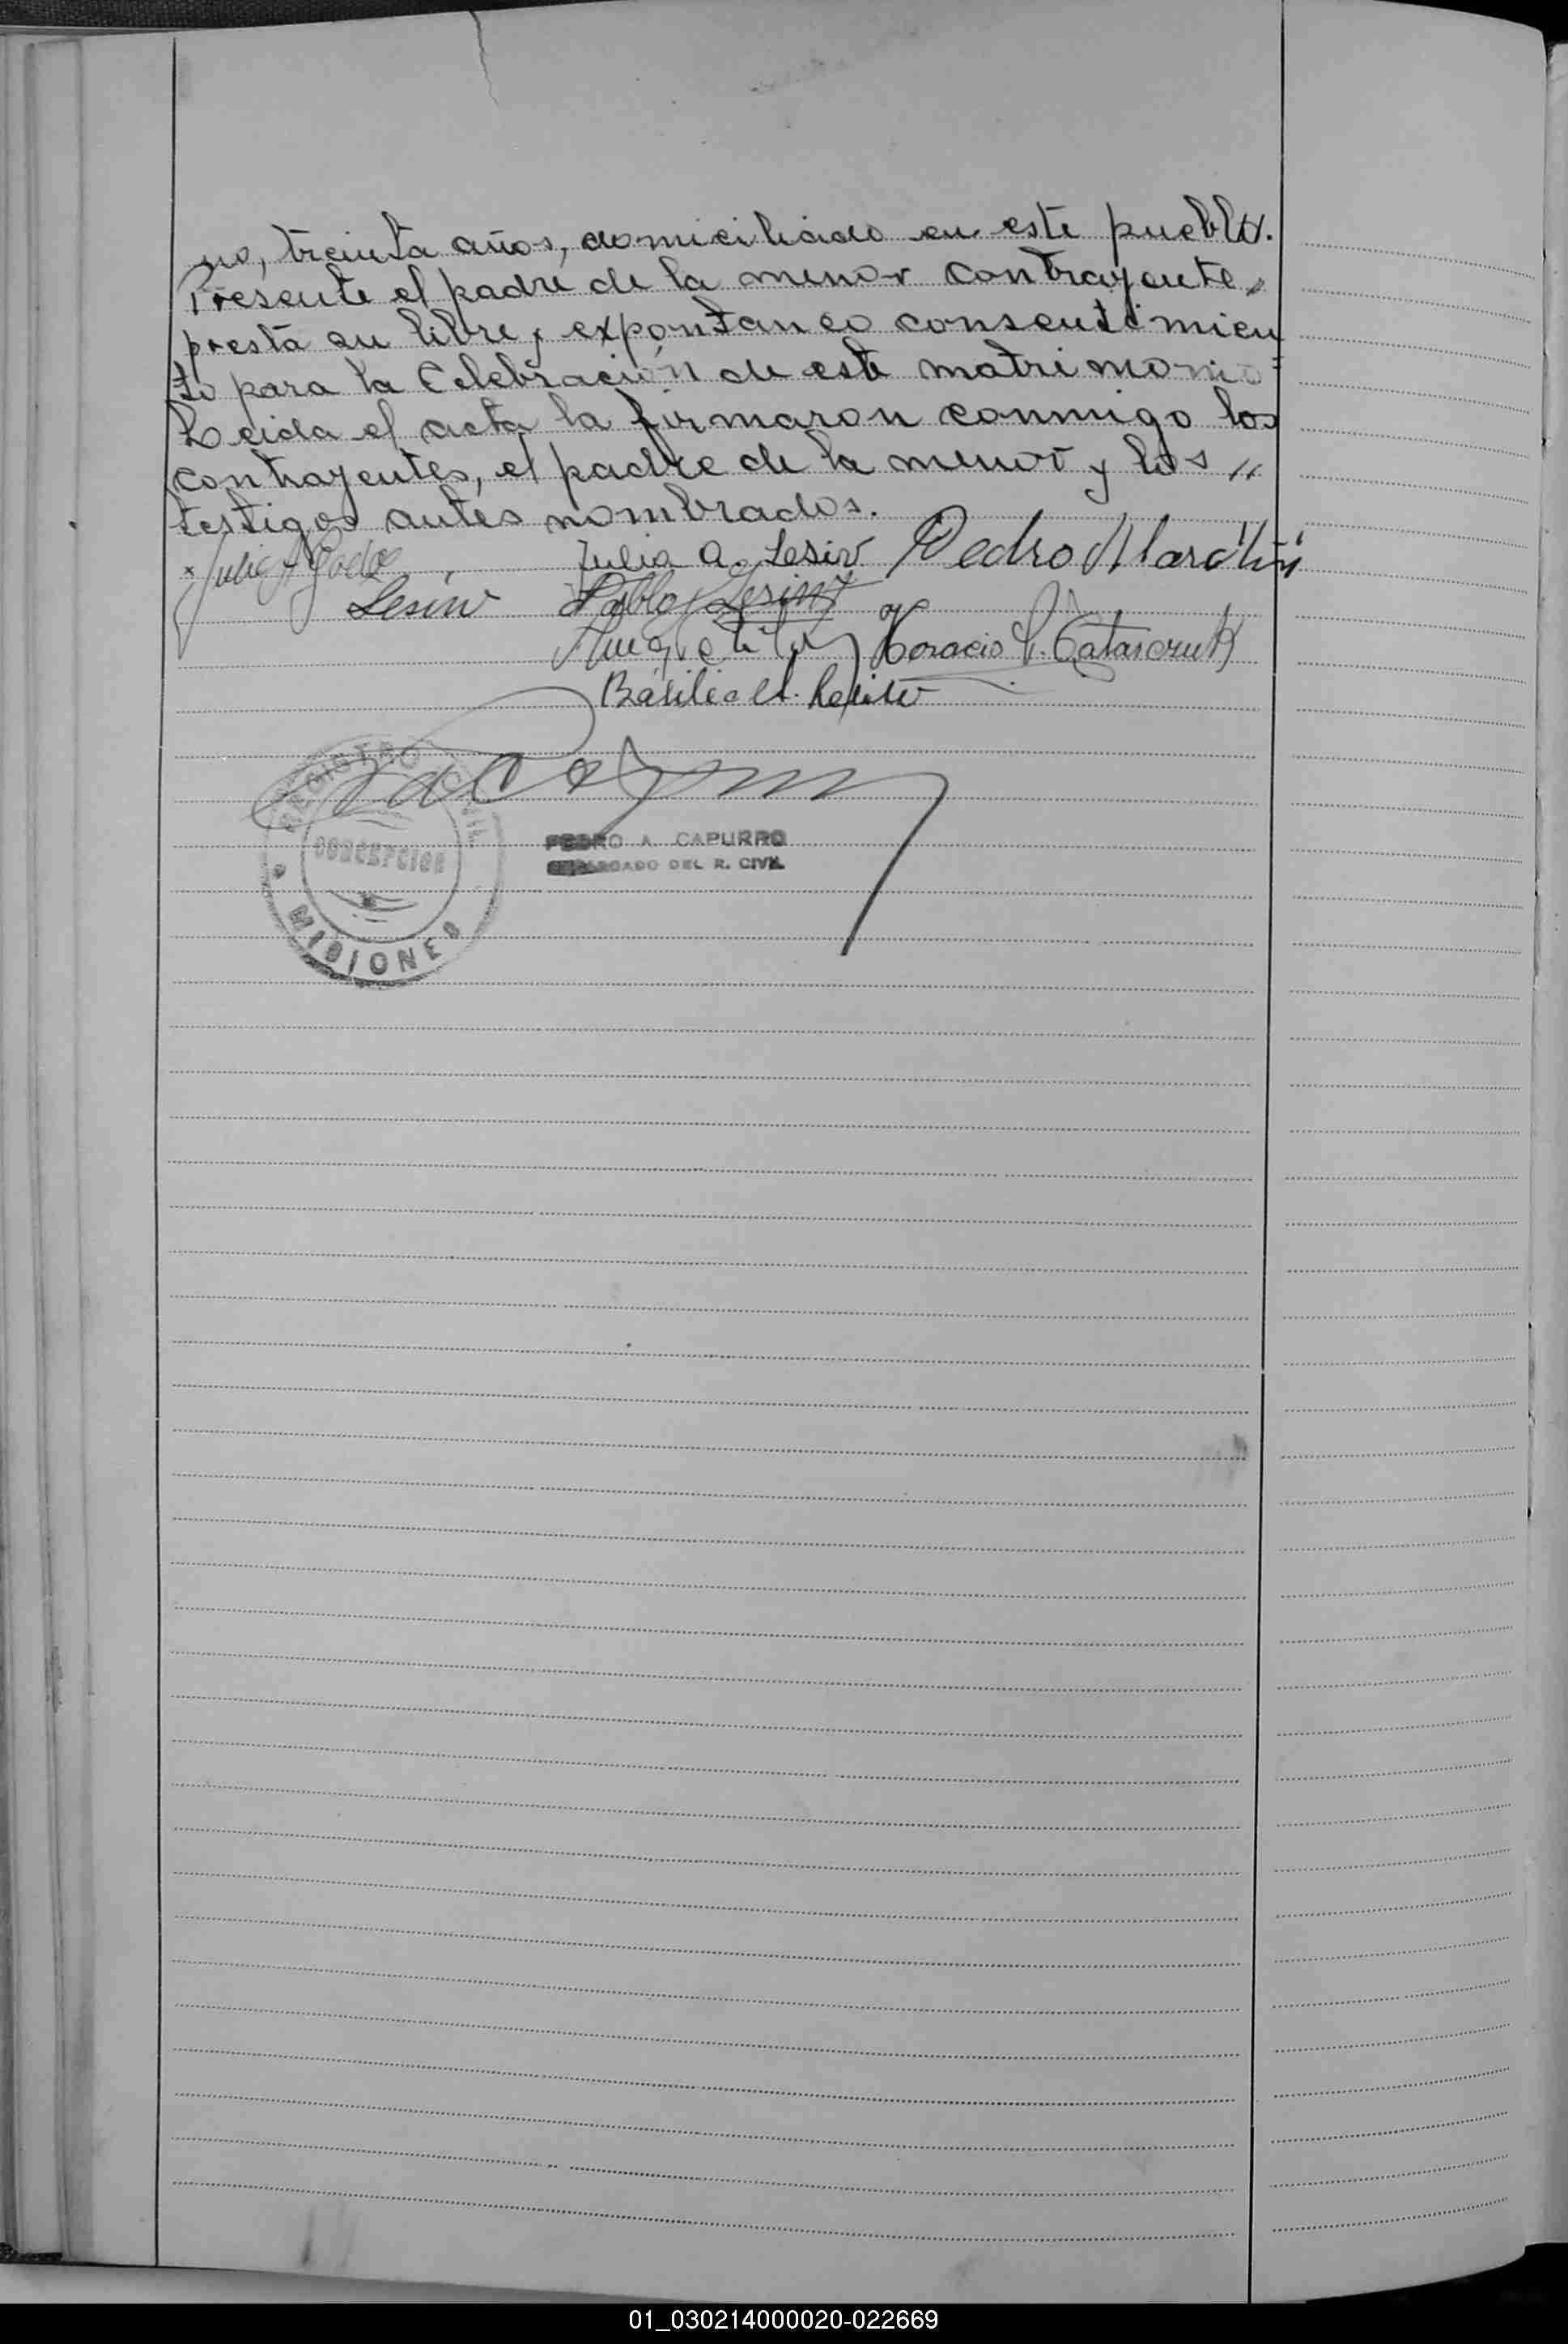 no, treinta años, domiciliado en este pueblo.
Presente el padre de la menor contrayente,
presta su libre y expontaneo consentimien
to para la Celebración de este matrimonio=
Leida el acta la firmaron conmigo los
contrayentes, el padre de la menor y los "
testigos antes nombrados.
Julia A. Lesiw Pedro
Lesiw Pablo
Horacio
Basilio
REGISTRO CIVIL
CONCEPCION
MISIONES
PEDRO A. CAPURRO
ENCARGADO DEL R. CIVIL
01_030214000020-022669